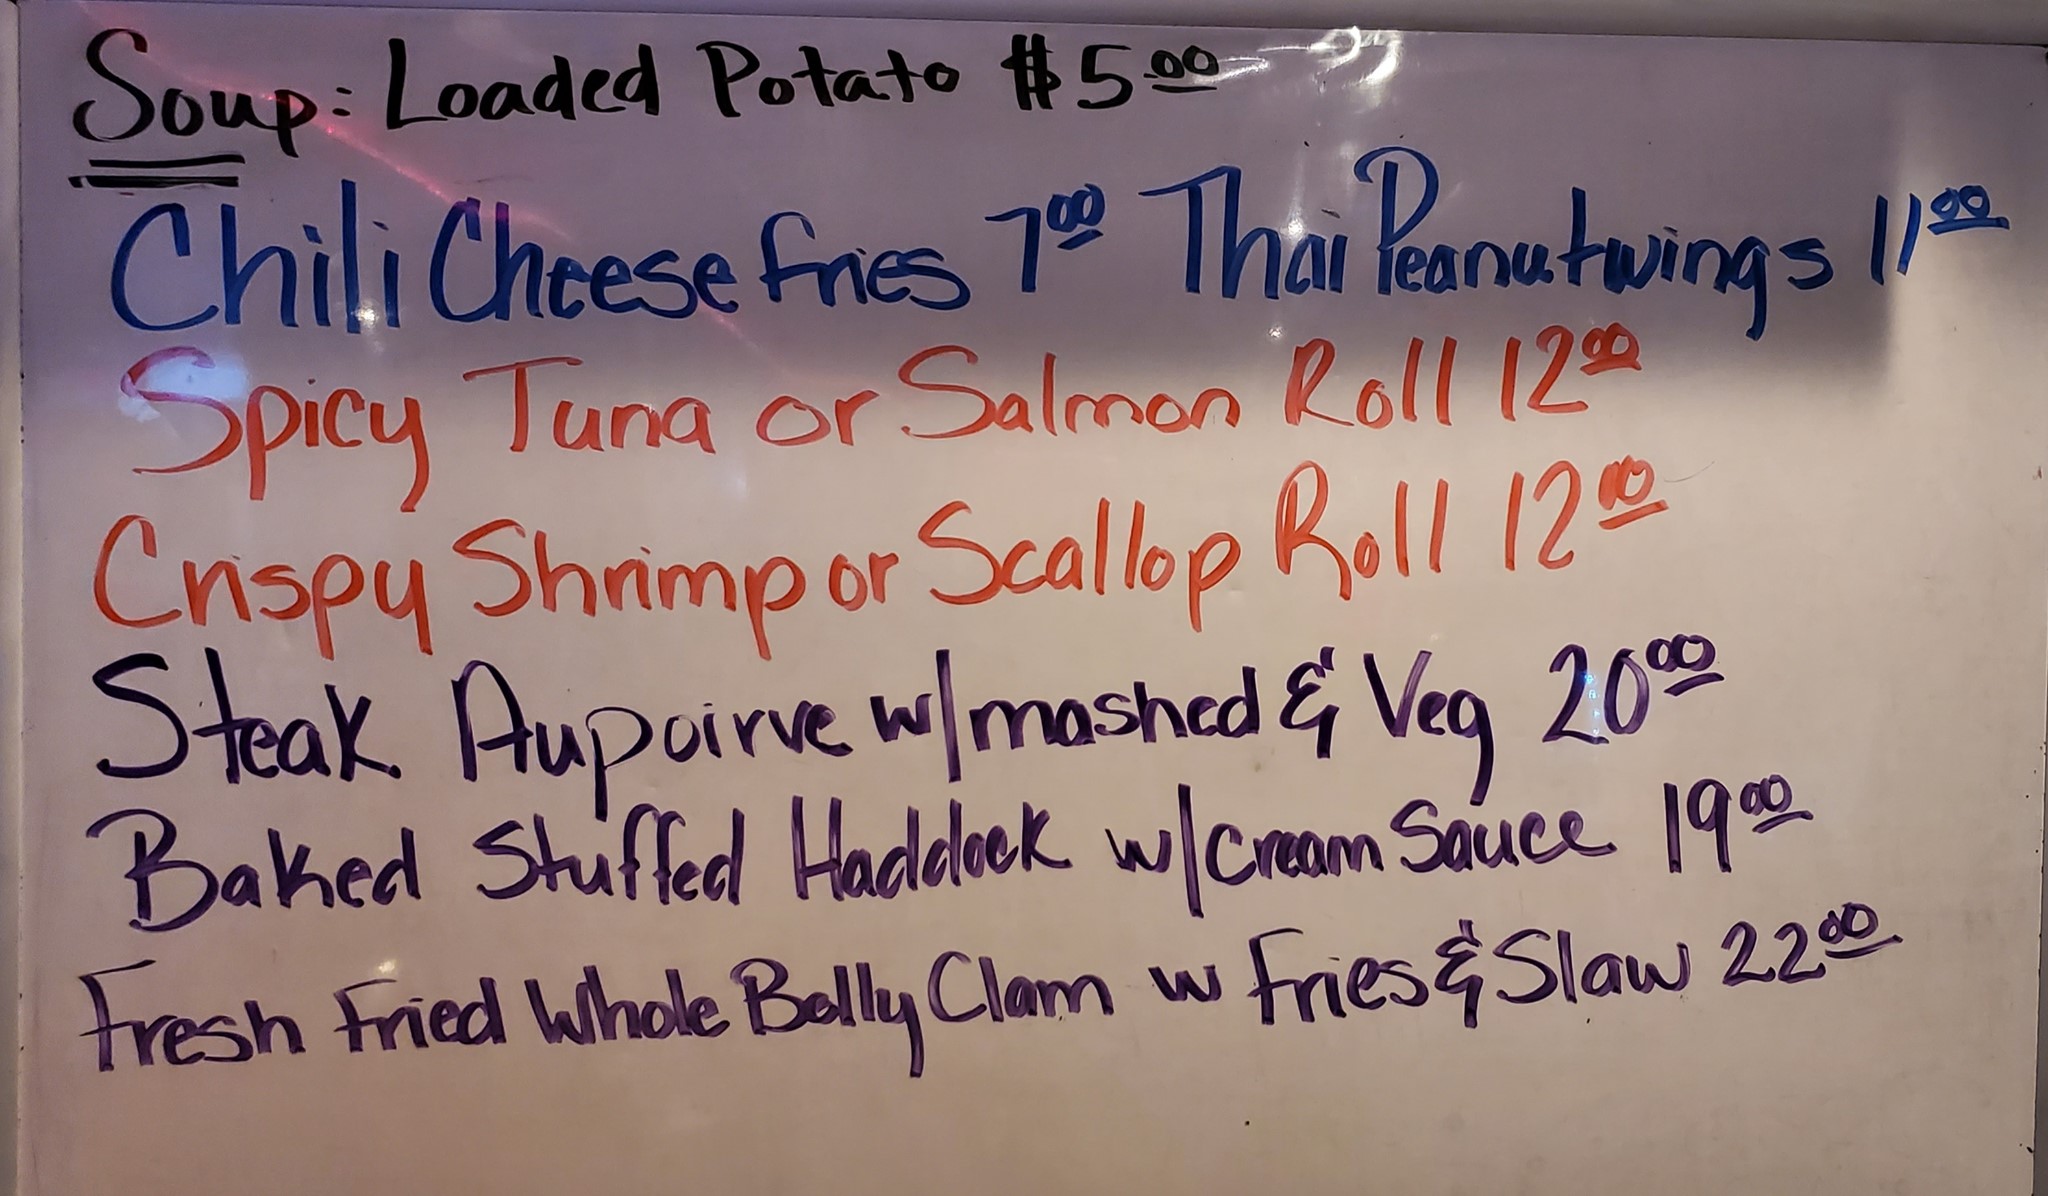 Soup: Loaded Potato $5.00
Chili Cheese Fries 7.00 Thai Peanut wings 11.00
Spicy Tuna or Salmon Roll 12.00
Crispy Shrimp or Scallop Roll 12.00
Steak Aupoirve w/mashed & Veg 20.00
Baked Stuffed Haddock w/cream Sauce 19.00
Fresh Fried Whole Belly Clam w Fries & Slaw 22.00